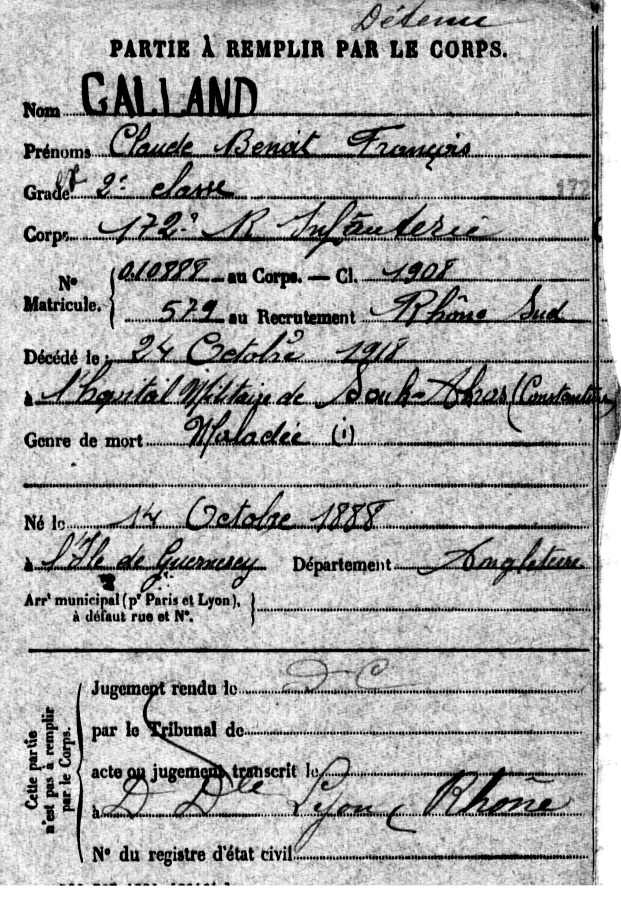 Détenu
PARTIE À REMPLIR PAR LE CORPS.
Nom GALLAND
Prénoms Claude Benoit François
Grade St 2e classe 172
Corps 172e R Infanterie
No Matricule. { 010888 au Corps. — Cl. 1908
579 au Recrutement Rhône Sud
Décédé le 24 Octobre 1918
à l'hôpital Militaire de Souk-Ahras (Constantine)
Genre de mort Maladie (i)
Né le 14 Octobre 1888
à l'Ile de Guernesey Département Angleterre
Arrt municipal (pr Paris et Lyon),
à défaut rue et No.
Cette partie n'est pas à remplir par le Corps.
Jugement rendu le D C
par le Tribunal de
acte ou jugement transcrit le
à D Dle Lyon (Rhône
No du registre d'état civil